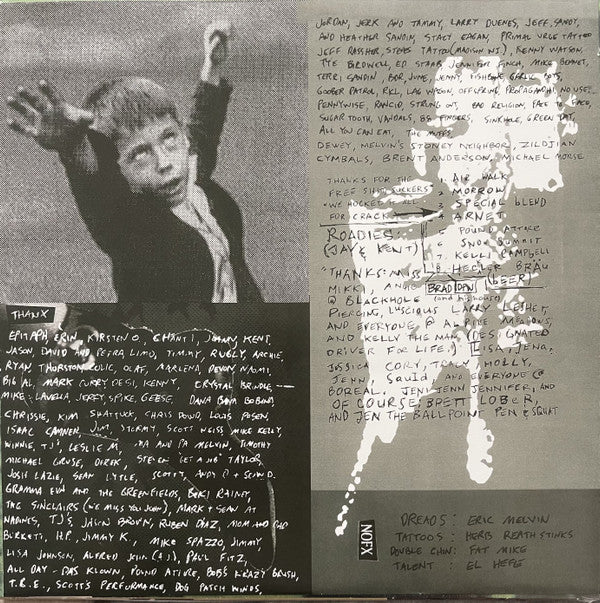 THANX
EPITAPH, ERIN, KIRSTEN O, CHANTI, JOHNNY, KENT,
JASON, DAVID AND PETRA LIMO, TIMMY, RUGLY, ARCHIE,
RYAN THORSTON, OLAF, MARLENA DEVON, NAOMI,
BIG AL, MARK CURRY, DESI, KENNY, CRYSTAL BRINDLE,
MIKE LAVELLA, JERRY, SPIKE, GEESE, DANA
CHRISSIE, KIM SHATTUCK, CHRIS DOWD, LOUIS POSEN,
ISAAC CAMNER, JIM, STORMY, SCOTT WEISS, MIKE KELLY,
WINNIE, TJ, LESLIE M, MA AND PA MELVIN, TIMOTHY
MICHAEL CRUSE, DEREK, STEVEN "GET A JOB" TAYLOR,
JOSH LAZIE, SEAN LYTLE, SCOTTY, ANDY
GRAMMA EVN AND THE GREENFIELDS, BEKI RAINY,
THE SINCLAIRS (WE MISS YOU JOHN), MARK + SEAN AT
TJ'S, JASON BROWN, RUBEN DIAZ, MOM AND DAD
BURKETT, H.P., JIMMY K., MIKE SPAZZO, JIMMY,
LISA JOHNSON, ALFRED JOHN (A.J.), PAUL FITZ,
ALL DAY - DAS KLOWN, POUND ATTIRE, BOB'S KRAZY BRUSH,
T.R.E., SCOTT'S PERFORMANCE, DOG PATCH WINOS,
JORDAN, JERK AND TAMMY, LARRY DUENES, JEFF, SANDY,
AND HEATHER SANDIN, STACY EAGAN, PRIMAL URGE TATTOO
JEFF RASSHER, STEVES TATTOO (MADISON WI), KENNY WATSON
TYE BIRDWELL, ED STARR, JENNIFER FINCH, MIKE BENNET,
TERRI GANDIN, BOB, JUNE, JENNY, FISHBONE, GARLIC, POTS,
GOOBER PATROL, RKL, LAG WAGON, OFFSPRING, PROPAGANDHI, NO USE..
PENNYWISE, RANCID, STRUNG OUT, BAD RELIGION, FACE TO FACE,
SUGAR TOOTH, VANDALS, 86 FINGERS, SINKHOLE, GREEN DAY,
ALL YOU CAN EAT, THE MUFFS
DEWEY, MELVIN'S STONEY NEIGHBOR, ZILDJIAN
CYMBALS, BRENT ANDERSON, MICHAEL MORSE
THANKS FOR THE
FREE SHIT, SUCKERS
WE HOCKED IT ALL
FOR CRACK
1. AIR WALK
2. MORROW
3. SPECIAL BLEND
4. ARNET
5. POUND ATTIRE
6. SNOW SUMMIT
7. KELLI CAMPBELL
8. HECLER BRÄU
(BEER)
ROADIES:
(JAY & KENT)
"THANKS: MISS
MIKKI AND BRAD/DAN
@ BLACKHOLE (and his house)
PIERCING, LUSCIOUS LARRY
AND EVERYONE @ EMPIRE
AND KELLY THE MAN, DESIGNATED
DRIVER FOR LIFE, LISA, JENA,
JESSICA, CORY, TRACY, HOLLY,
JENN SQUID AND EVERYONE @
BOREAL. JENI, JENN, JENNIFER, AND
OF COURSE, BRETT LOBER,
AND JEN THE BALLPOINT PEN & SQUAT
NOFX
DREADS: ERIC MELVIN
TATTOOS: HERB REATHSTINKS
DOUBLE CHIN: FAT MIKE
TALENT: EL HEFE